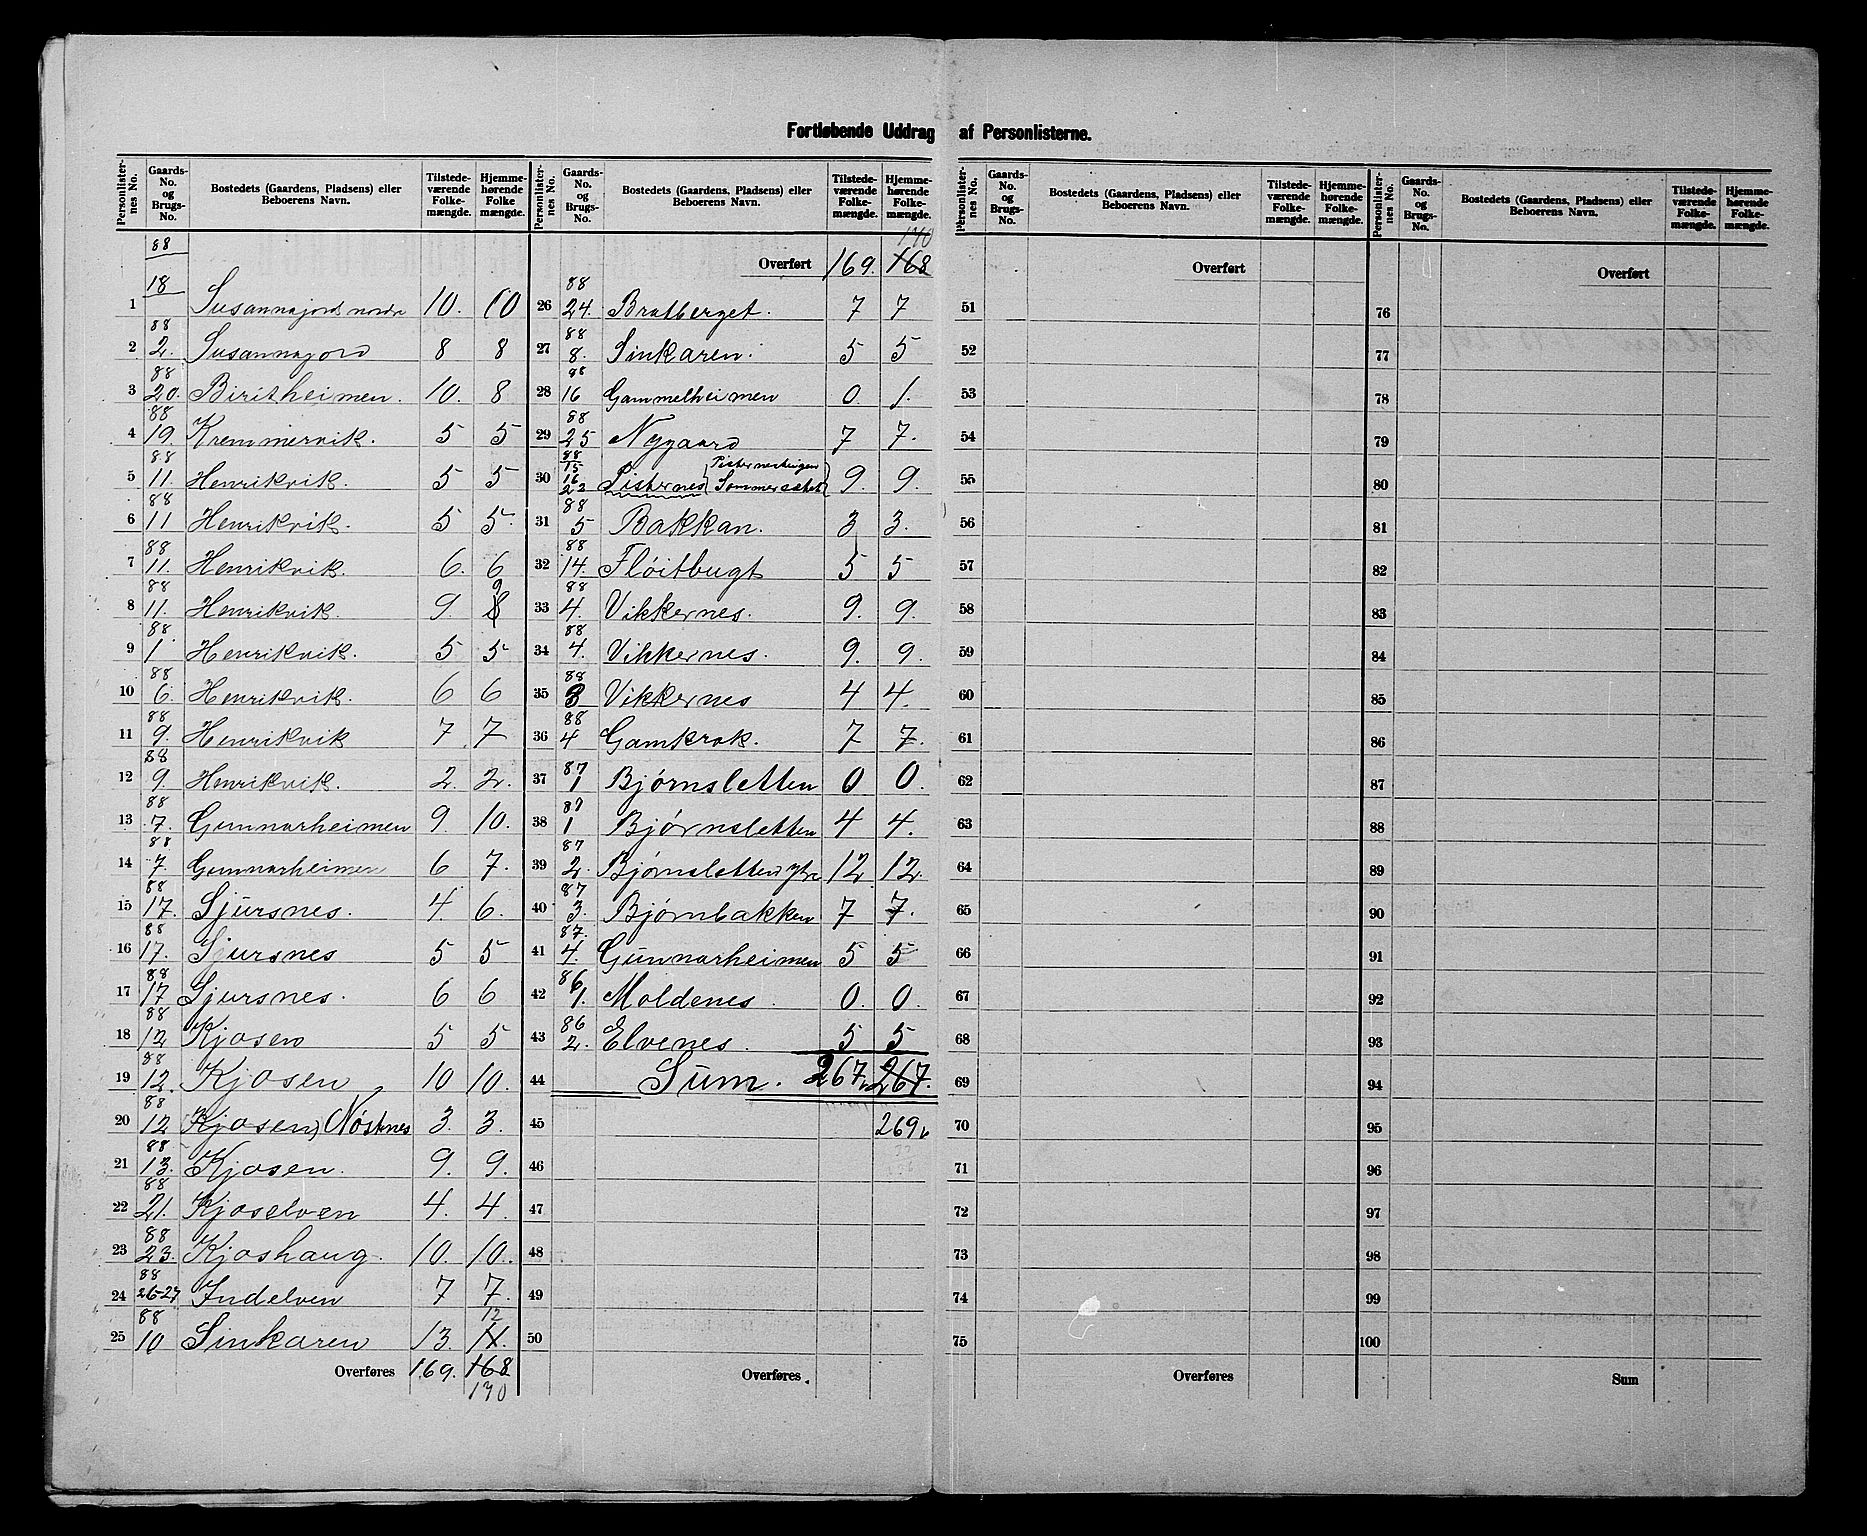 Fortløbende Uddrag af Personlisterne.
Personlister-nes No. | Gaards-No. og Brugs-No. | Bostedets (Gaardens, Pladsens) eller Beboerens Navn. | Tilstede-værende Folke-mængde. | Hjemme-hørende Folke mængde.
1 88 18 Susannajord nordre 10. 10
2 88 2. Susannajord 8 8
3 88 20. Biritheimen. 10. 8
4 88 19. Kremmervik. 5 5
5 88 11. Henrikvik. 5 5
6 88 11 Henrikvik. 5 5.
7 88 11. Henrikvik. 6. 6
8 88 11. Henrikvik. 9. 8 9
9 88 1 Henrikvik. 5 5
10 88 6. Henrikvik. 6 6
11 88 9. Henrikvik 7 7
12 88 9. Henrikvik. 2. 2.
13 88 7. Gunnarheimen 9. 10.
14 88 7. Gunnarheimen 6 7.
15 88 17. Sjursnes. 4. 6.
16 88 17. Sjursnes 5 5
17 88 17 Sjursnes. 6 6
18 88 12 Kjosen 5 5
19 88 12. Kjosen 10 10.
20 88 12 Kjosen, Nøstnes 3. 3.
21 88 13. Kjosen. 9. 9.
22 88 21. Kjoselven 4. 4.
23 88 23. Kjoshaug. 10. 10.
24 88 26-27 Indelven 7 7.
25 88 10 Sinkaren 13. 11. 12
Overføres 169. 168 170
Personlister-nes No. | Gaards-No. og Brugs-No. | Bostedets (Gaardens, Pladsens) eller Beboerens Navn. | Tilstede-værende Folke-mængde. | Hjemme-hørende Folke-mængde.
Overført 169. 168 170
26 88 24. Bratberget. 7 7
27 88 8. Sinkaren. 5 5
28 88 16 Gammelheimen 0. 1.
29 88 25 Nygaard 7 7.
30 88 15 16 22 Pisternes Sommersætet 9. 9.
31 88 5 Bakkan. 3 3.
32 88 14. Fløitbugt 5 5
33 88 4. Vikkernes. 9. 9.
34 88 4. Vikkernes. 9. 9.
35 88 3 Vikkernes 4 4.
36 88 4 Gamkrok. 7 7.
37 87 1 Bjørnsletten 0 0.
38 87 1 Bjørnsletten 4 4.
39 87 2. Bjørnsletten ytre 12 12
40 87 3. Bjørnbakken 7 7.
41 87. 4. Gunnarheimen 5 5
42 86 1. Moldenes. 0. 0.
43 86 2. Elvenes. 5 5
44 Sum. 267. 267.
45 269
46
47
48
49
50
Overføres.
Personlister-nes No. | Gaards-No. og Brugs-No. | Bostedets (Gaardens, Pladsens) eller Beboerens Navn. | Tilstede-værende Folke-mængde. | Hjemme-hørende Folke-mængde.
Overført
51
52
53
54
55
56
57
58
59
60
61
62
63
64
65
66
67
68
69
70
71
72
73
74
75
Overføres
Personlister-nes No. | Gaards-No. og Brugs-No. | Bostedets (Gaardens, Pladsens) eller Beboerens Navn. | Tilstede-værende Folke-mængde. | Hjemme-hørende Folke-mængde.
Overført
76
77
78
79
80
81
82
83
84
85
86
87
88
89
90
91
92
93
94
95
96
97
98
99
100
Sum